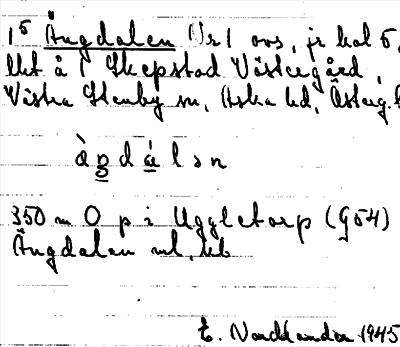 1⁵ Ängdalen Nr 1 ovs, jr kol 5,
lkt å 1 Skepstad Västergård,
Västra Stenby sn, Aska hd, Österg.
àŋdálən
350 m O p i Uggletorp (G54)
Ängdalen
E. Nordlander 1945